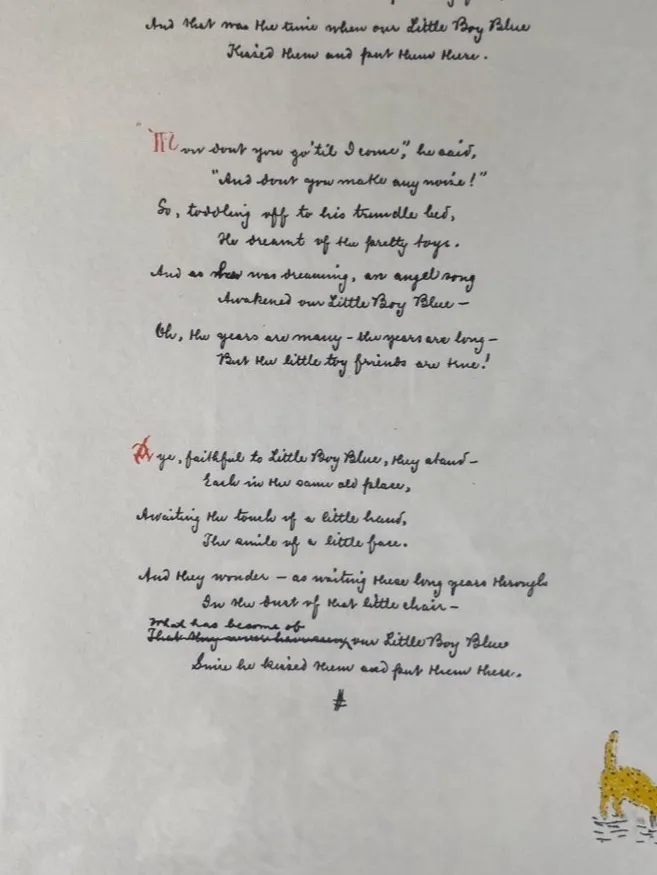 And that was the time when our Little Boy Blue
Kissed them and put them there.
"Now dont you go 'til I come," he said,
"And dont you make any noise!"
So, toddling off to his trundle bed,
He dreamt of the pretty toys.
And as he was dreaming, an angel song
Awakened our Little Boy Blue —
Oh, the years are many – the years are long –
But the little toy friends are true!
Aye, faithful to Little Boy Blue, they stand –
Each in the same old place,
Awaiting the touch of a little hand,
The smile of a little face.
And they wonder – as waiting these long years through
In the dust of that little chair –
What has become of
our Little Boy Blue
Since he kissed them and put them there.